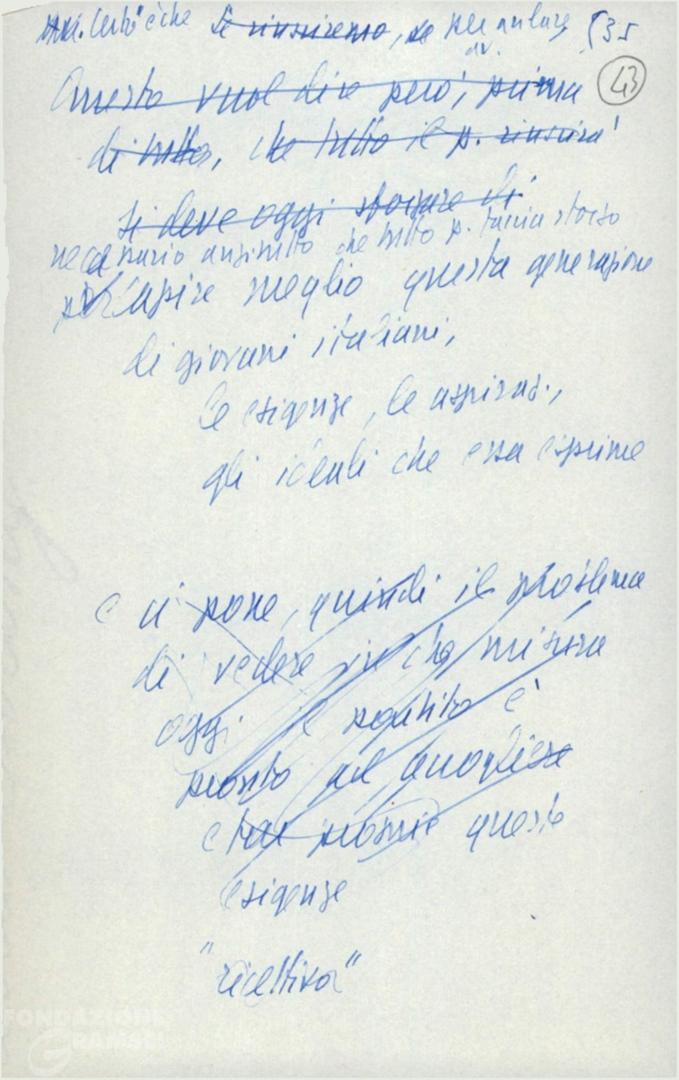 Certo è che si riusciremo, se per andare 535
av.
Questo vuol dire però, prima 43
di tutto, che tutto il p. riuscirà
si deve oggi sforzare di
necessario anzitutto che tutto p. faccia sforzo
per capire meglio questa generazione
di giovani italiani,
le esigenze, le aspiraz.,
gli ideali che essa esprime
e ci pone, quindi il problema
di vedere in che misura
oggi il partito è
pronto ad accogliere
e far proprie queste
esigenze
"ricettiva"
FONDAZIONE
GRAMSCI